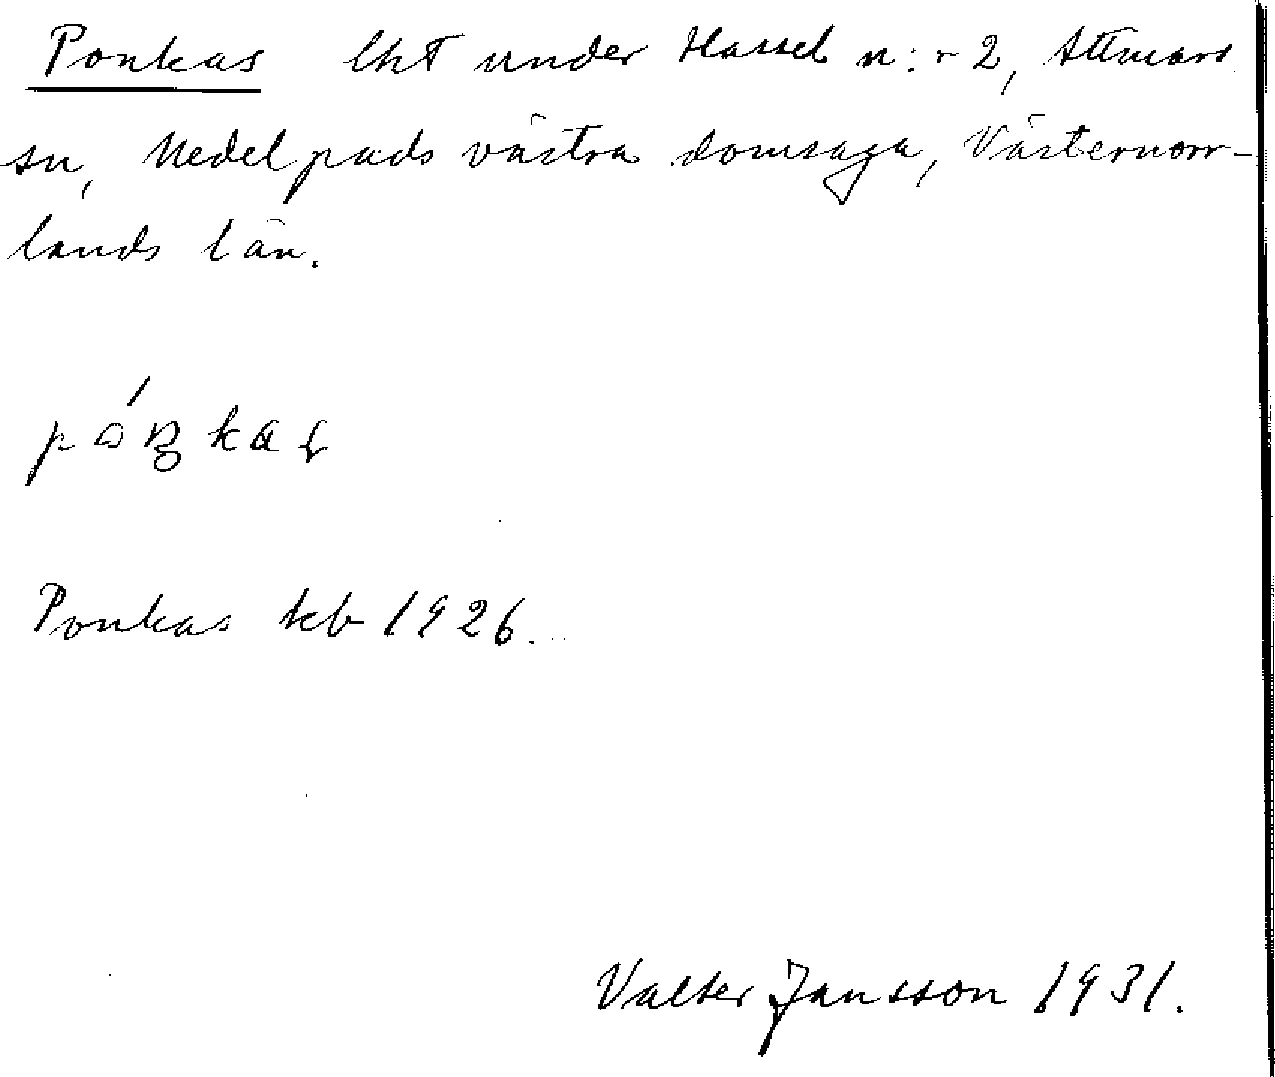 Ponkas lht under Hassel n:r 2, Attmars
sn, Medelpads västra domsaga, Västernorr-
lands län.
Ponkas kb 1926.
Valter Jansson 1931.